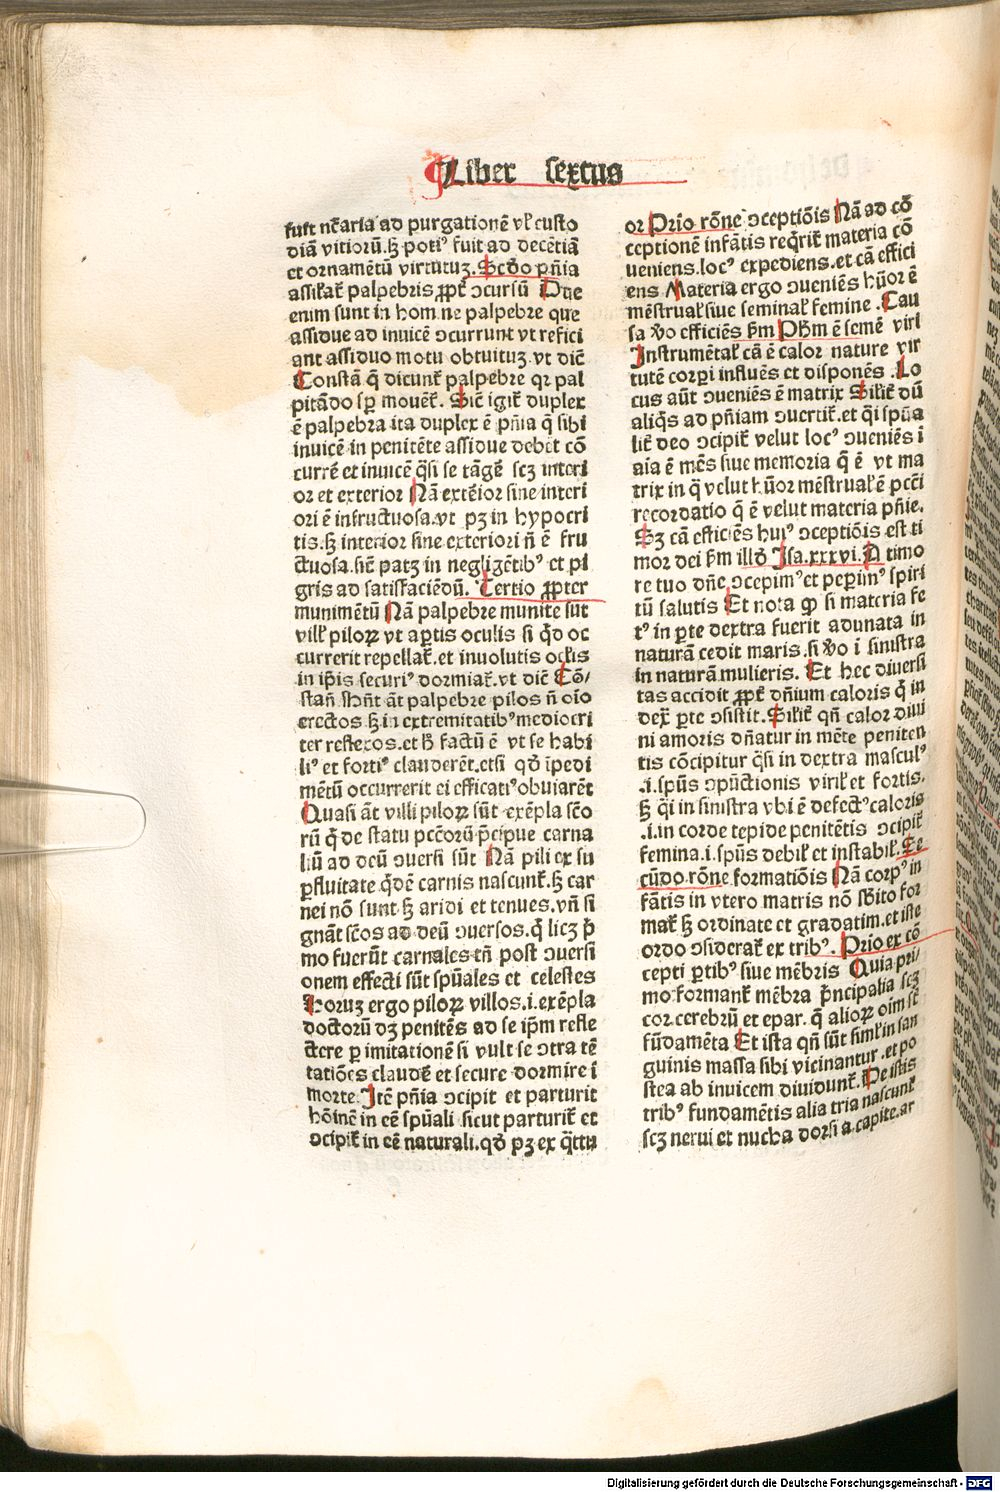 Liber sextus
fuit nc̄aria ad purgationē vl̓ custo
diā vitiorū. ꝫ poti⁹ fuit ad decētiā
et ornamētū virtutuꝫ. Scd̓o pn̄ia
assil̓at̄ palpebris ꝓpt̄ ꝯcursū Due
enim sunt in hom ne palpebre que
assidue ad inuicē ꝯcurrunt vt refici
ant assiduo motu obtuituꝫ. vt dic̄
Constā q̄ dicunt̄ palpebre qꝛ pal
pitādo sꝑ mouēt̄. Sic̄ igit̄ duplex
ē palpebra ita duplex ē pn̄ia q̄ sibi
inuicē in penitēte assidue debēt cō
currē et inuicē q̄si se tāgē scꝫ interi
or et exterior Nā exterior sine interi
ori ē infructuosa. vt pꝫ in hypocri
tis. ꝫ interior sine exteriori nō ē fru
ctuosa. sic̄ patꝫ in negligētib⁹ et pi
gris ad satisfaciēdū. Tertio ꝓpter
munimētū Nā palpebre munite sūt
vill̓ piloꝝ vt apertis oculis si qd̓ oc
currerit repellāt. et inuolutis oculis
in ip̄is securi⁹ dormiāt. vt dic̄ Cō/
stan̄ Hn̄t āt palpebre pilos n̄ oīo
erectos ꝫ in extremitatib⁹ mediocri
ter reflexos. et h̓ factū ē vt se habi
li⁹ et forti⁹ clauderēt. et si qd̓ īpedi
mētū occurrerit ei efficati⁹ obuiarēt
Quasi āt villi piloꝝ sūt exēpla scō
rū q̄ de statu pctōrū p̄cipue carna
liū ad deū ꝯuersi sūt Nā pili ex su
ꝑfluitate qd̓ē carnis nascunt̄. ꝫ car
nei nō sunt ꝫ aridi et tenues. vn̄ si
gnāt scōs ad deū ꝯuersos. q̄ licꝫ p̄
mo fuerūt carnales tn̄ post ꝯuersi
onem effecti sūt spūales et celestes
Horuꝫ ergo piloꝝ villos. i. exēpla
doctorū dꝫ penitēs ad se ip̄m refle
ctere ꝑ imitationē si vult se ꝯtra tē
tatiōes claudē et secure dormire ī
morte. Itē pn̄ia ꝯcipit et parturit
hōinē in eē spūali sicut parturit̄ et
ꝯcipit̄ in eē naturali. qd̓ pꝫ ex q̄ttu
or Prīo rōne ꝯceptiōis Nā ad cō
ceptionē infātis req̄rit̄ materia cō
ueniens. loc⁹ expediens. et cā effici
ens Materia ergo ꝯueniēs hūor ē
mēstrual̓ siue seminal̓ femine. Cau
sa v̓o efficiēs s̄m Ph̄m ē semē viri
Instrumētal̓ cā ē calor nature vir
tutē corꝑi influēs et disponēs. Lo
cus aūt ꝯueniēs ē matrix Silit̄ dū
aliq̄s ad pn̄iam ꝯuertit̄. et q̄i spūa
lit̄ deo ꝯcipit̄ velut loc⁹ ꝯueniēs ī
aīa ē mēs siue memoria q̄ ē vt ma
trix in q̄ velut hūor mēstrual̓ ē pctī
recordatio q̄ ē velut materia pn̄ie.
Sꝫ cā efficiēs hui⁹ ꝯceptiōis est ti
mor dei s̄m illd̓ Isa. xxxvi. A timo
re tuo dn̄e ꝯcepim⁹ et peperim⁹ spiri
tū salutis Et nota ꝙ si materia fe
t⁹ in ꝑte dextra fuerit adunata in
naturā cedit maris. si v̓o ī sinistra
in naturā mulieris. Et hec diuersi
tas accidit ꝓpt̄ dn̄ium caloris q̄ in
dex̄ ꝑte ꝯsistit. Silit̄ qn̄ calor diui
ni amoris dn̄atur in mēte peniten
tis cōcipitur q̄si in dextra mascul⁹
. i. spūs ꝯpūctionis viril̓ et fortis.
ꝫ q̄i in sinistra vbi ē defect⁹ caloris
. i. in corde tepide penitētis ꝯcipit̄
femina. i. spūs debil̓ et instabil̓. Se
cūdo rōne formatiōis Nā corp⁹ in
fātis in vtero matris nō sb̓ito for
mat̄ ꝫ ordinate et gradatim. et iste
ordo ꝯsiderat̄ ex trib⁹. Prīo ex cō
cepti ꝑtib⁹ siue mēbris Quia pri/
mo formant̄ mēbra p̄ncipalia scꝫ
cor. cerebrū et epar. q̄ alioꝝ oīm st̄
fūdamēta Et ista qn̄ sūt simul̓ in san
guinis massa sibi vicinantur. et po
stea ab inuicem diuidunt̄. De istis
trib⁹ fundamētis alia tria nascunt̄
scꝫ nerui et nucha dorsi a capite. ar
Digitalisierung gefördert durch die Deutsche Forschungsgemeinschaft - DFG